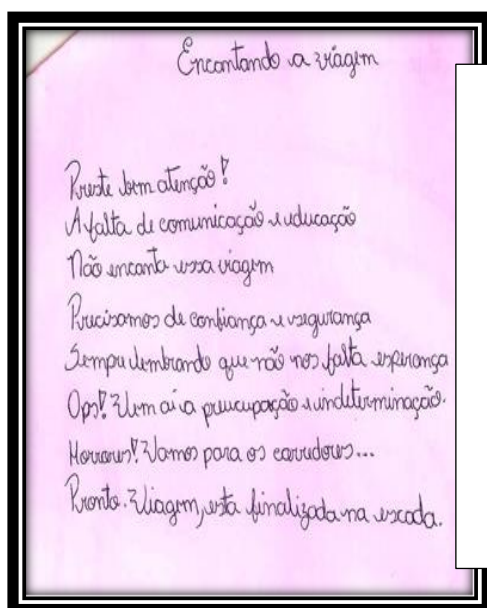 Encantando a viagem
Preste bem atenção!
A falta de comunicação e educação
Não encanta essa viagem
Precisamos de confiança e segurança
Sempre lembrando que não nos falta esperança
Ops! Vem aí a preucupação e indeterminação.
Horrores! Vamos para os corredores...
Pronto. Viagem, esta finalizada na escada.